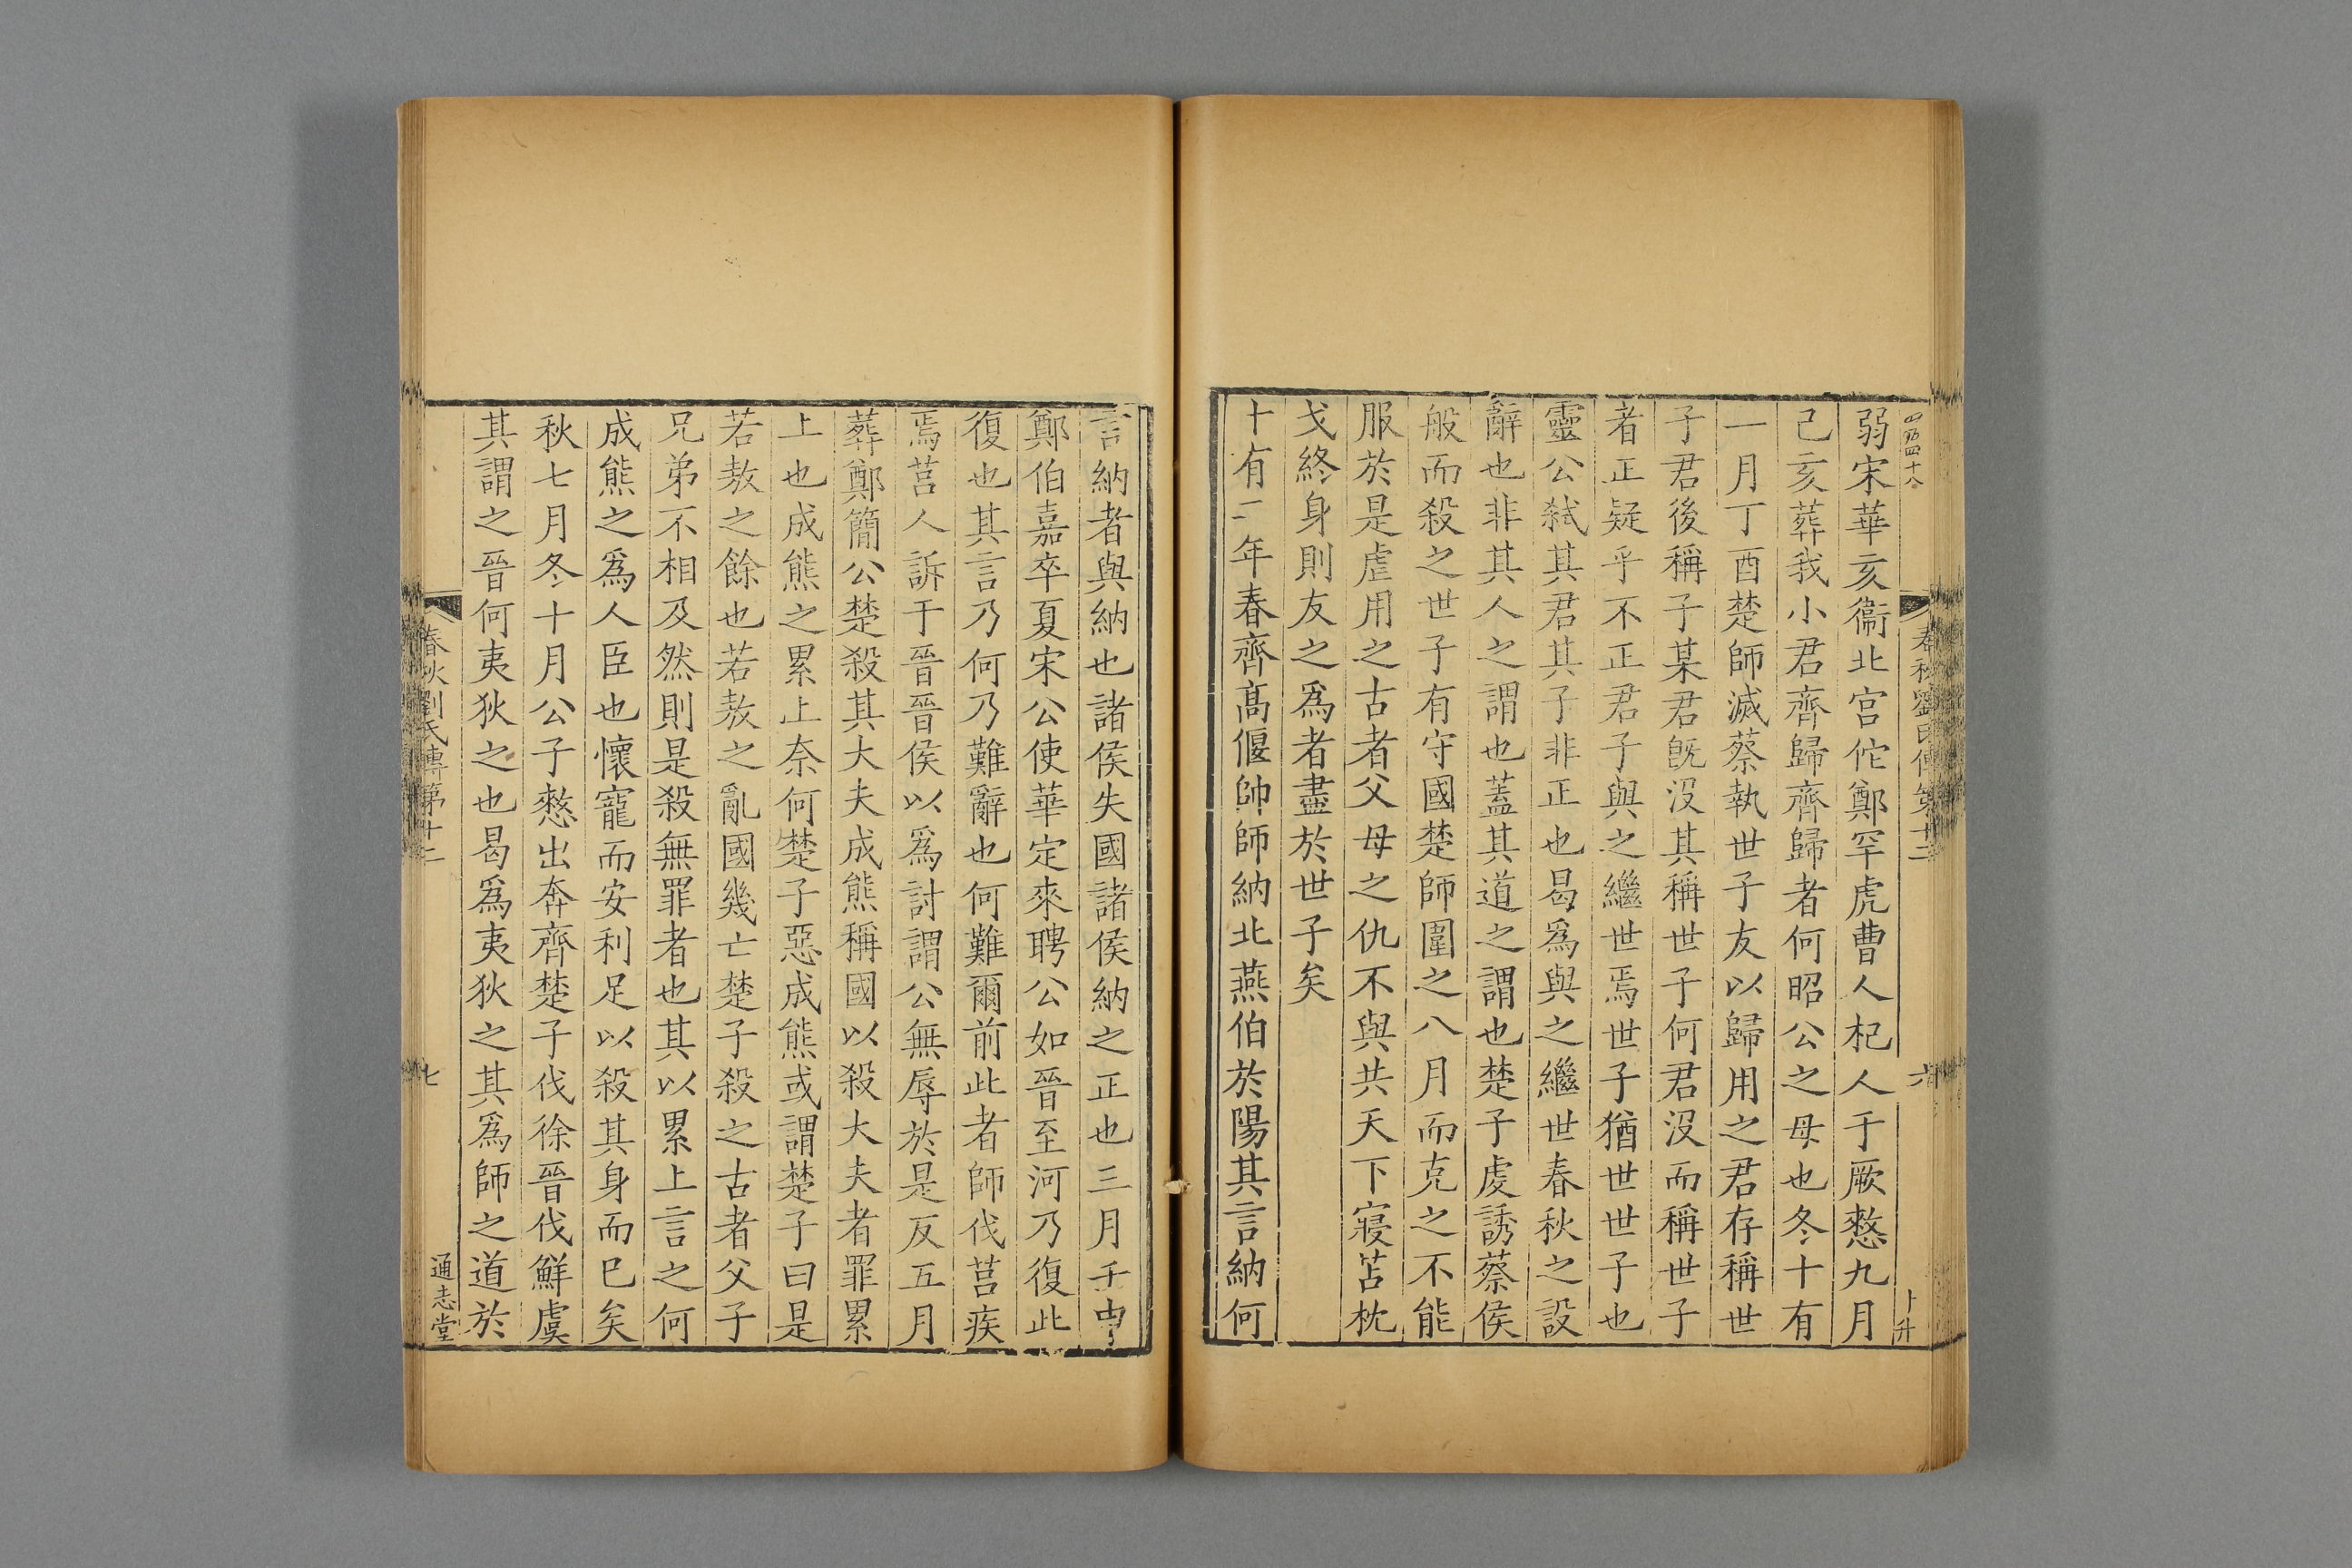 春秋劉氏傳第十二
六
弱宋華亥衞北宮佗鄭罕虎曹人杞人于厥憖九月
己亥葬我小君齊歸齊歸者何昭公之母也冬十有
一月丁酉楚師滅蔡執世子友以歸用之君存稱世
子君後稱子某君旣沒其稱世子何君沒而稱世子
者正疑乎不正君子與之繼世焉世子猶世世子也
靈公弒其君其子非正也曷爲與之繼世春秋之設
辭也非其人之謂也蓋其道之謂也楚子虔誘蔡侯
般而殺之世子有守國楚師圍之八月而克之不能
服於是虐用之古者父母之仇不與共天下寢苫枕
戈終身則友之爲者盡於世子矣
十有二年春齊髙偃帥師納北燕伯於陽其言納何
言納者與納也諸侯失國諸侯納之正也三月壬申
鄭伯嘉卒夏宋公使華定來聘公如晉至河乃復此
復也其言乃何乃難辭也何難爾前此者師伐莒疾
焉莒人訴于晉晉侯以爲討謂公無辱於是反五月
葬鄭簡公楚殺其大夫成熊稱國以殺大夫者罪累
上也成熊之累上奈何楚子惡成熊或謂楚子曰是
若敖之餘也若敖之亂國幾亡楚子殺之古者父子
兄弟不相及然則是殺無罪者也其以累上言之何
成熊之爲人臣也懷寵而安利足以殺其身而巳矣
秋七月冬十月公子憖出奔齊楚子伐徐晉伐鮮虞
其謂之晉何夷狄之也曷爲夷狄之其爲師之道於
春秋劉氏傳第十二
七
通志堂